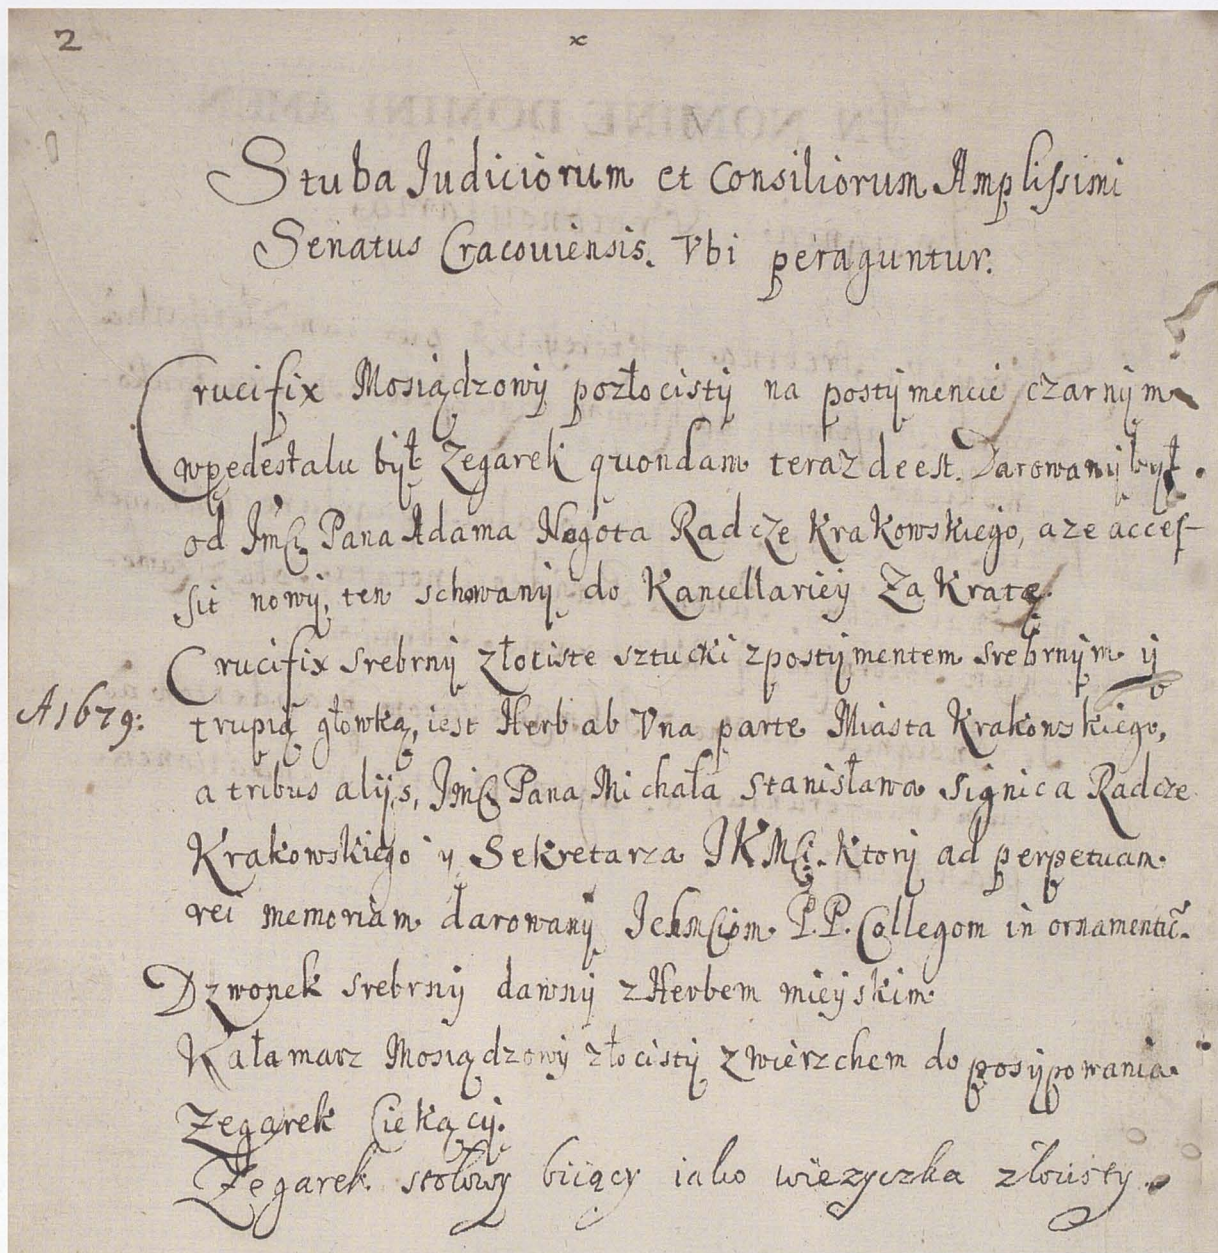 2 x
Stuba Judiciorum et Consiliorum Amplissimi
Senatus Cracouiensis. Vbi peraguntur.
Crucifix Mosiądzowy pozłocisty na postymencie czarnym
wpedestalu był Zegarek quondam teraz deest. Darowany był.
od Jmći Pana Adama Nogota Radcze Krakowskiego, a ze accef-
sit nowy, ten schowany do Kancellariey Za Kratę.
Crucifix srebrny złociste sztucki zpostymentem srebrnym y
A 1679: trupią głowką, iest Herb ab Vna parte Miasta Krakowskiego,
a tribus alijs, Jmći Pana Michała Stanisława Signica Radcze
Krakowskiego y Sekretarza JKMći. ktory ad perpetuam
rei memoriam darowany Ichmciom P.P. Collegom in
Dzwonek srebrny dawny z Herbem mieyskim
Kałamarz Mosiądzowy złocisty zwierzchem do posypowania
Zegarek Ciekący.
Zegarek stołowy biiący iako wiezyczka złocisty.